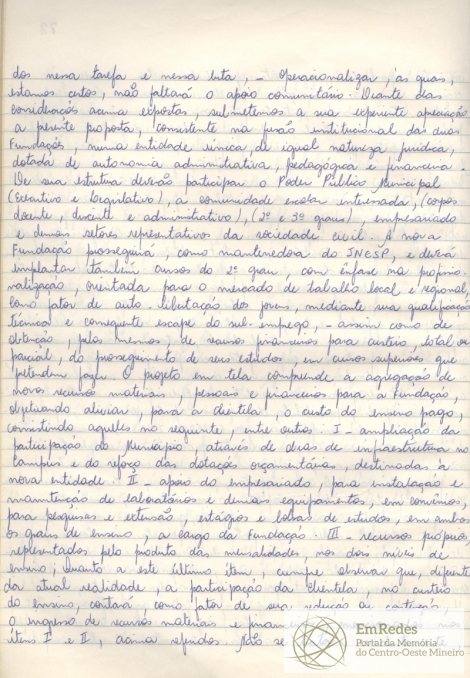 dos nessa tarefa e nessa luta, - Operacionalizar, às quais,
estamos certos, não faltará o apoio comunitário. Diante das
considerações acima expostas, submetemos a sua experiente apreciação
a presente proposta, consistente na fusão institucional das duas
Fundações, numa entidade única de igual natureza jurídica,
dotada de autonomia administrativa, pedagógica e financeira.
De sua estrutura deverão participar o Poder Público Municipal
(Executivo e Legislativo), a comunidade escolar interessada, (corpos
docente, discente e administrativo), (2º e 3º graus), empresariado
e demais setores representativos da sociedade civil. A nova
Fundação prosseguirá, como mantenedora do INESP, e deverá
implantar também cursos do 2º grau, com ênfase na profissio-
nalização, orientada para o mercado de trabalho local e regional,
como fator de auto-libertação dos jovens, mediante sua qualificação
técnica e consequente escape do sub-emprego, - assim como de
obtenção, pelos mesmos, de recursos financeiros para custeio, total ou
parcial, do prosseguimento de seus estudos, em cursos superiores que
pretendem fazer. O projeto em tela compreende a agregação de
novos recursos materiais, pessoais e financeiros para a Fundação,
objetivando aliviar, para a clientela, o custo do ensino pago,
consistindo aqueles no seguinte, entre outros: I - ampliação da
participação do Município, através de obras de infraestrutura no
campus e do reforço das dotações orçamentárias, destinadas à
nova entidade. II - apoio do empresariado, para instalação e
manutenção de laboratórios e demais equipamentos, em convênios,
para pesquisas e extensão, estágios e bolsas de estudos, em ambos
os graus de ensino, a cargo da Fundação. III - recursos próprios,
representados pelo produto das mensalidades, nos dois níveis de
ensino, Quanto a este último item, cumpre observar que, diferente
da atual realidade, a participação da clientela, no custeio
do ensino, contará, como fator de sua redução ou
o ingresso de recursos materiais e nos
itens I e II, acima referidos. Não se
EmRedes
Portal da Memória
do Centro-Oeste Mineiro